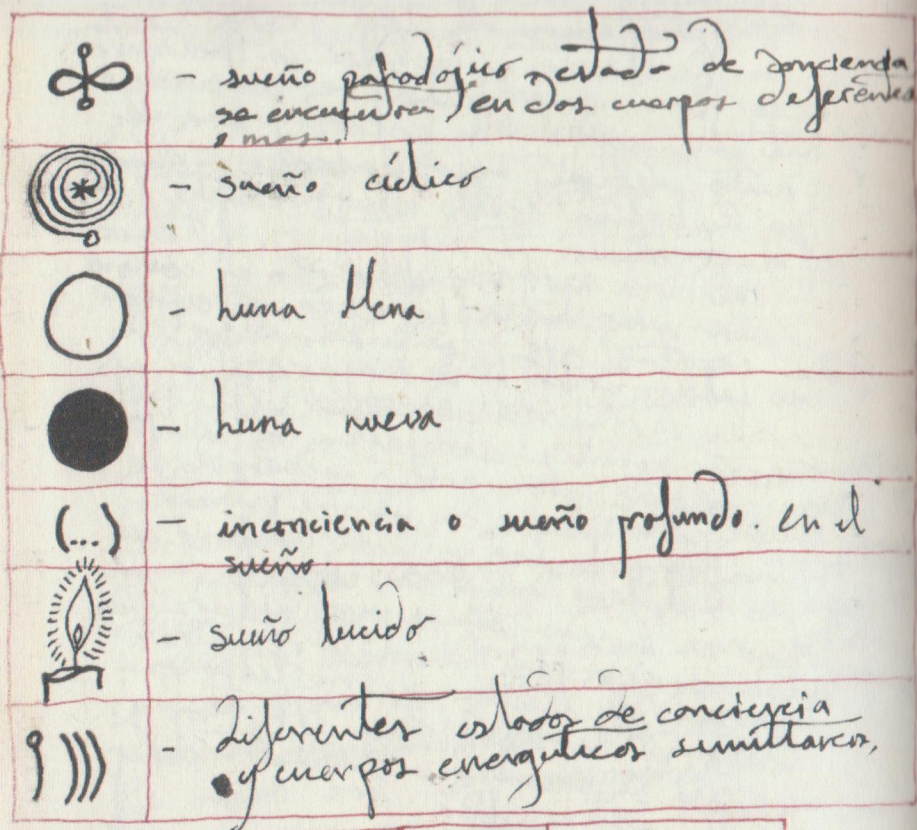 - sueño paradójico, estado de conciencia
se encuentra en dos cuerpos diferentes
o mas.
- sueño cíclico
- luna llena
- luna nueva
(...) - inconciencia o sueño profundo. en el
sueño.
- sueño lucido
- Diferentes estados de conciencia
y cuerpos energéticos simultaneos,